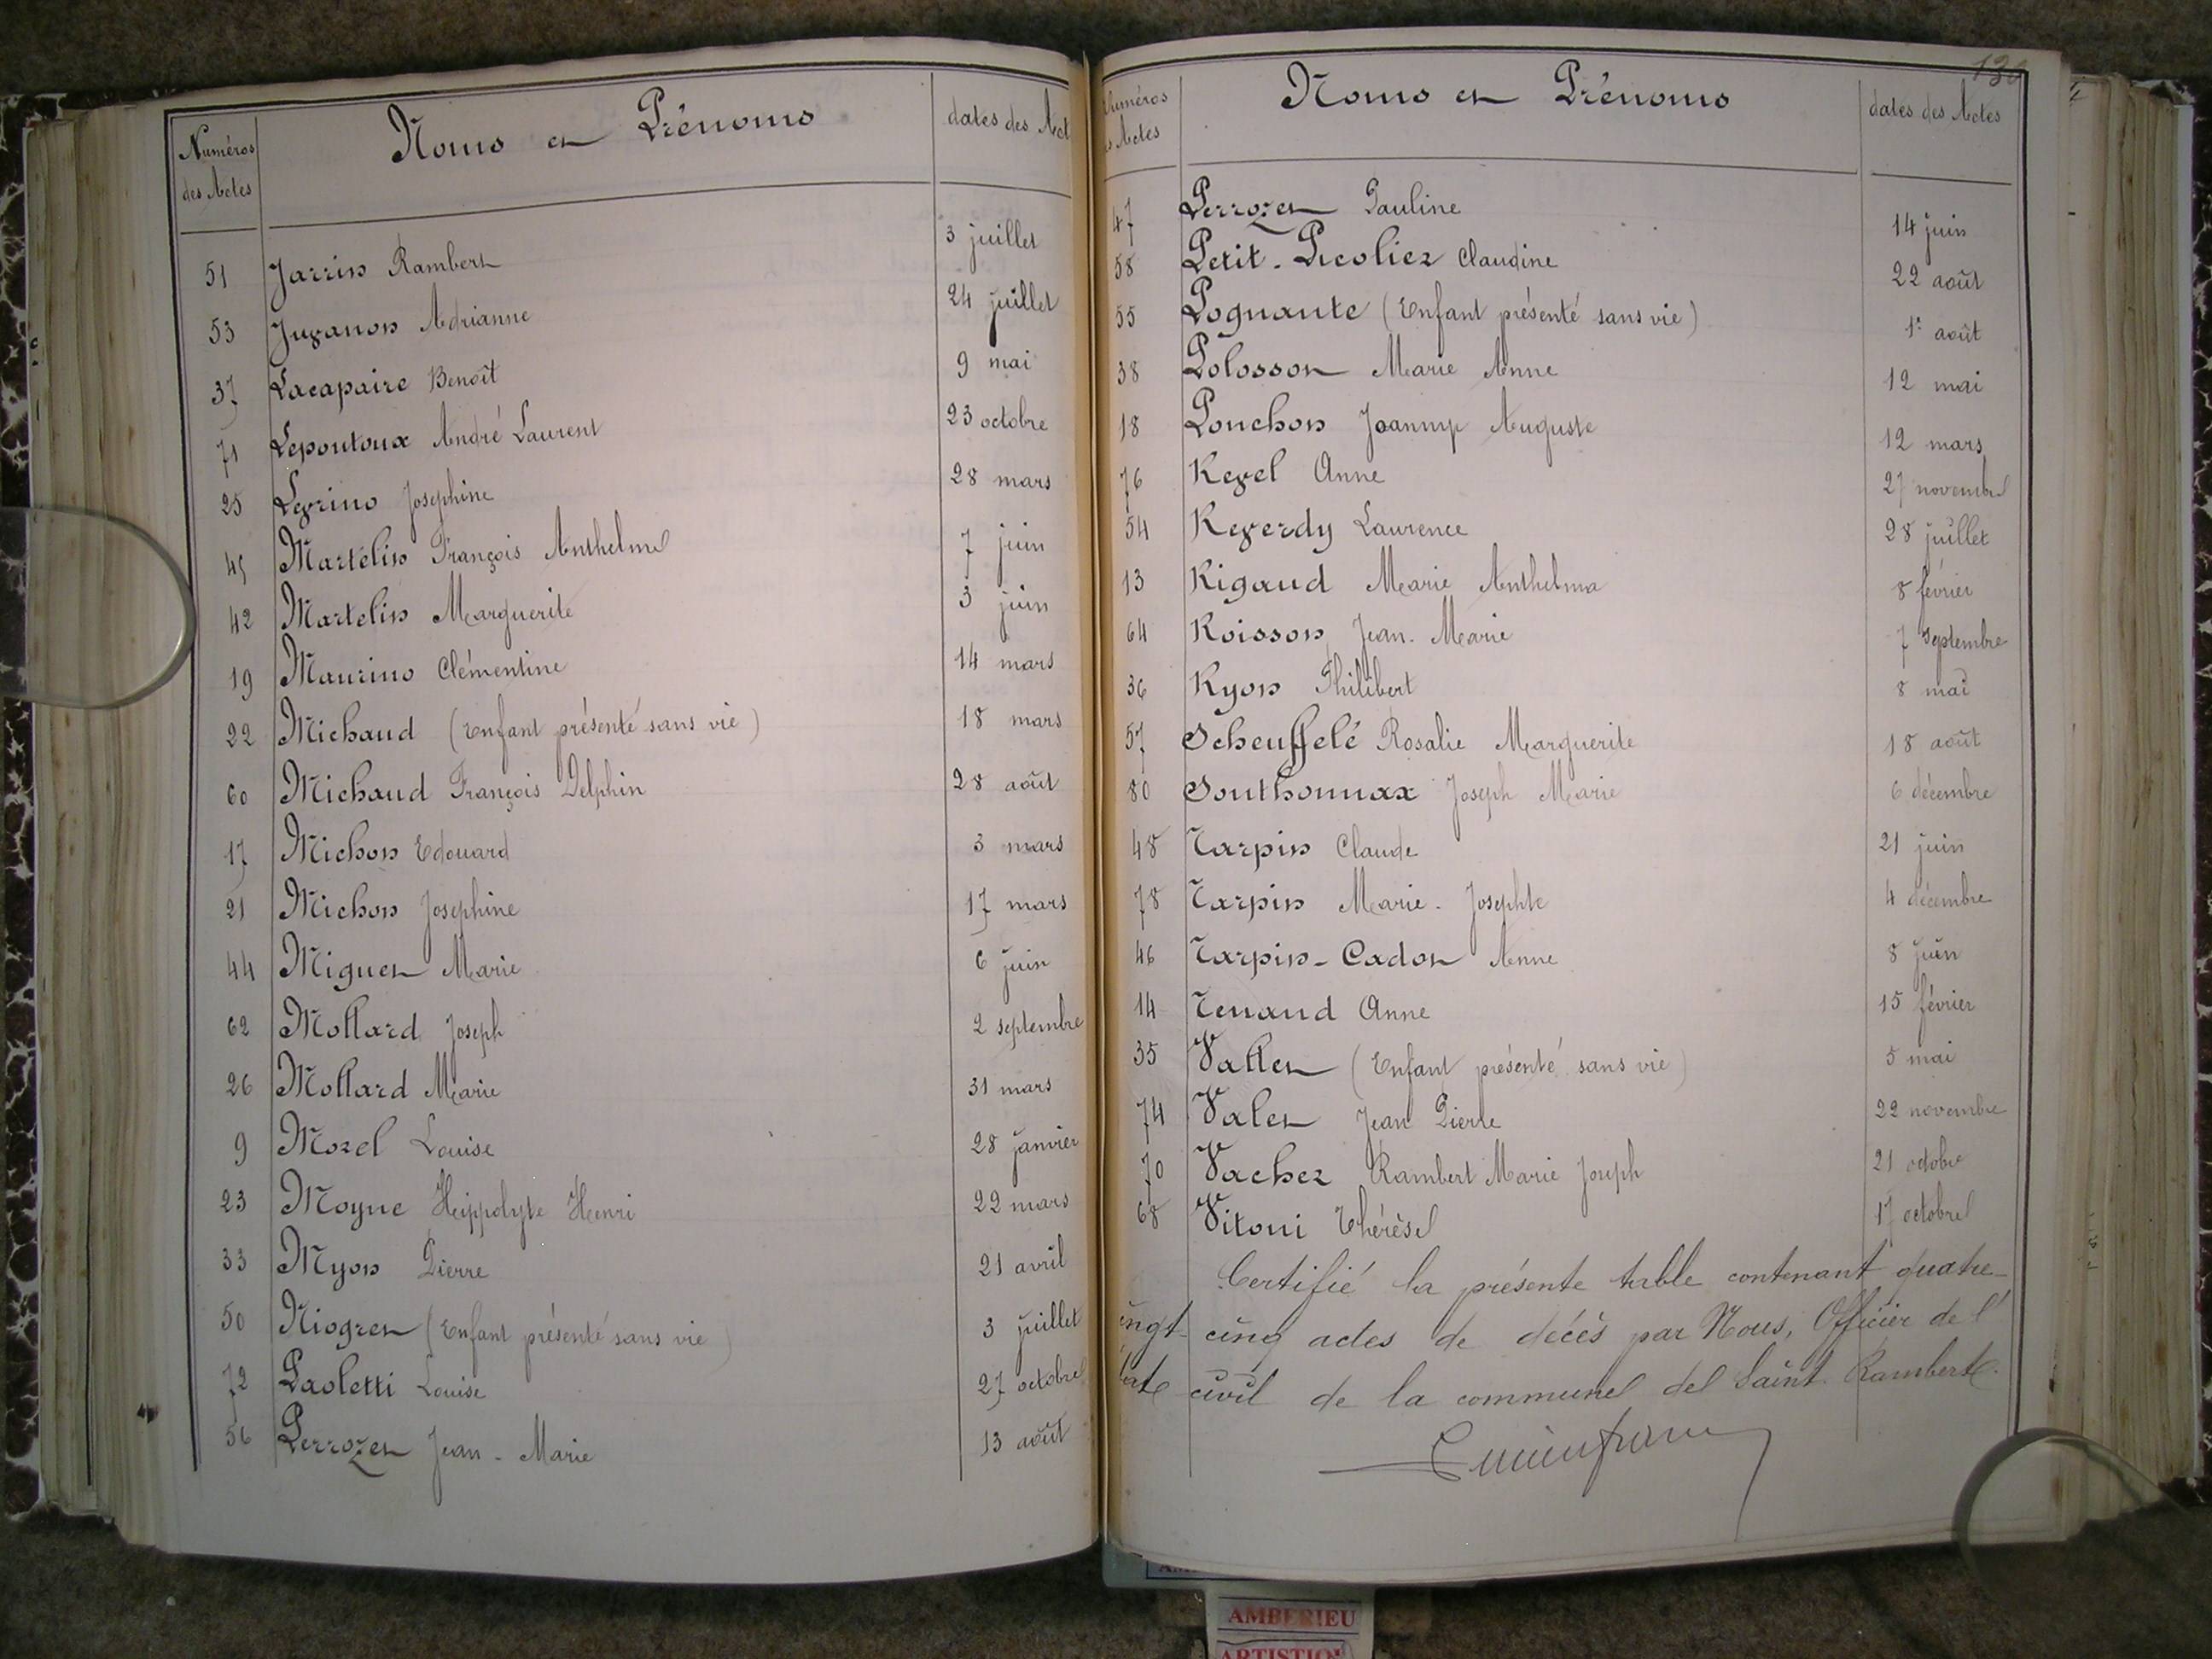 Numéros des Actes | Noms et Prénoms | dates des Act
51 Jarrin Rambert 3 juillet
53 Juvanon Adrianne 24 juillet
37 Lacapaire Benoît 9 mai
71 Lepoutoux André Laurent 23 octobre
25 Levrino Josephine 28 mars
45 Martelin François Anthelme 7 juin
42 Martelin Marguerite 3 juin
19 Maurino Clémentine 14 mars
22 Michaud (Enfant présenté sans vie) 18 mars
60 Michaud François Delphin 28 août
17 Michon Edouard 3 mars
21 Michon Josephine 17 mars
44 Miguet Marie 6 juin
62 Mollard Joseph 2 septembre
26 Mollard Marie 31 mars
9 Morel Louise 28 janvier
23 Moyne Hippolyte Henri 22 mars
33 Myon Pierre 21 avril
50 Niogret (Enfant présenté sans vie) 3 juillet
72 Paoletti Louise 27 octobre
56 Perrozet Jean - Marie 13 août
130
Numéros s Actes | Noms et Prénoms | dates des Actes
47 Perrozet Pauline 14 juin
58 Petit - Precolier Claudine 22 août
55 Pognante (Enfant présenté sans vie) 1er août
38 Polosson Marie Anne 12 mai
18 Ponchon Joanny Auguste 12 mars
76 Revel Anne 27 novembre
54 Reverdy Laurence 28 juillet
13 Rigaud Marie Anthelma 8 février
64 Roisson Jean - Marie 7 septembre
36 Ryon Philibert 8 mai
57 Scheuffelé Rosalie Marguerite 18 août
80 Southonnax Joseph Marie 6 décembre
48 Tarpin Claude 21 juin
78 Tarpin Marie - Josephte 4 décembre
46 Tarpin - Cadot Anne 8 juin
14 Tenand Anne 15 février
35 Vallet (Enfant présenté sans vie) 5 mai
74 Valet Jean Pierre 22 novembre
70 Vacher Rambert Marie Joseph 21 octobre
68 Vitoni Thérèse 17 octobre
Certifié la présente table contenant quatre-
vingt-cinq actes de décès par Nous, Officier de l'
état civil de la commune de Saint Rambert.
AMBERIEU